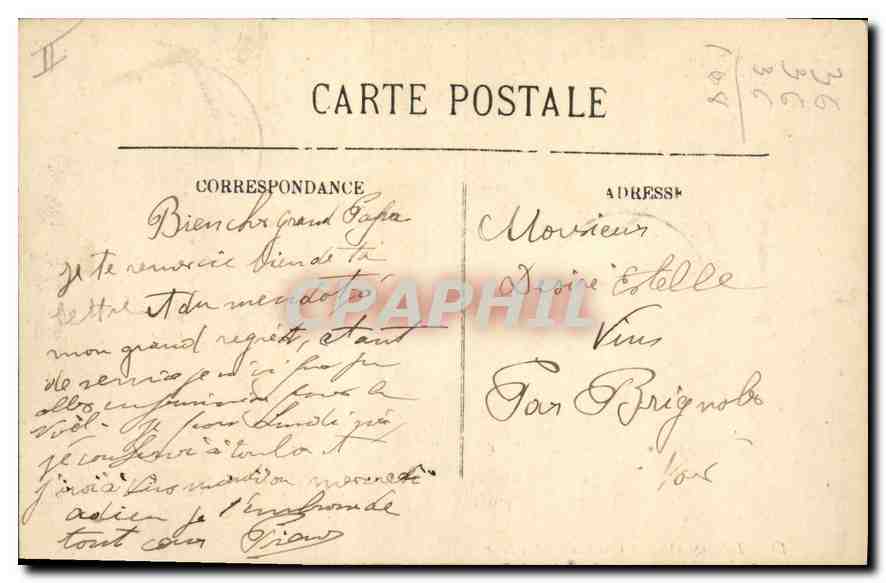 II
36
36
36
108
CARTE POSTALE
CORRESPONDANCE
ADRESSE
Bien cher grand Papa
je te remercie bien de ta
lettre et du mendat
mon grand regret, etant
de service je n'ai pas pu
aller en permission pour la
Noël. je Lundi
à toulon et
j'irai à Vins mardi ou mercredi
adieu je t'embrasse de
tout cœur
Monsieur
Desiré Estelle
Vins
Par Brignoles
Var
CPAPHIL